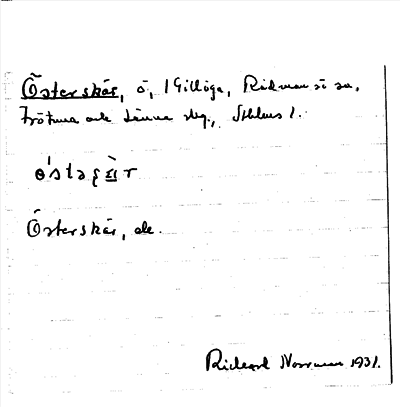 Österskär, ö, i Gillöga, Rådmansö sn,
Frötuna och Länna skg., Sthlms l.
Österskär, de
Rickard Norrman 1931.